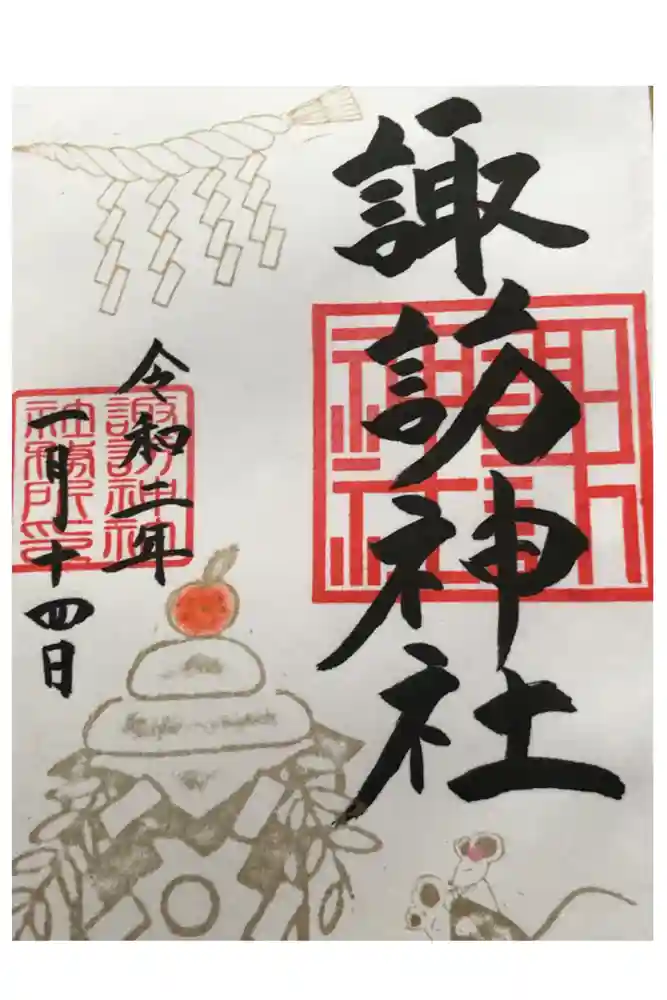 諏訪神社
諏訪
神社
令和二年
一月十四日
諏訪神社
社務所印